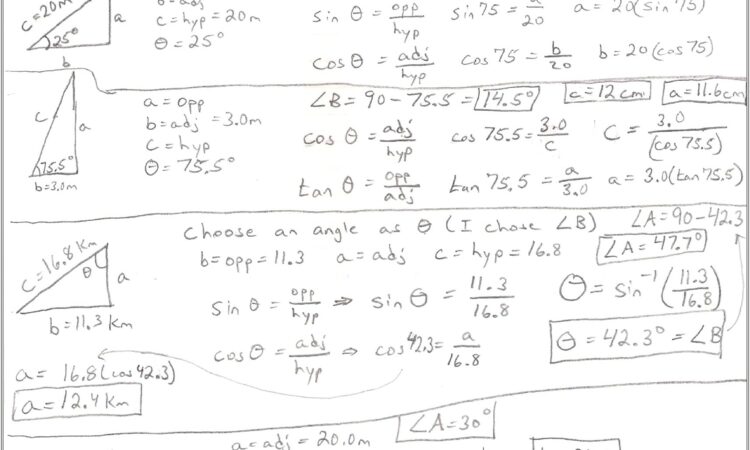 c=20m
25°
a
b
b=adj
c=hyp=20m
θ=25°
sin θ = opp/hyp   sin 75 = a/20   a = 20(sin 75)
cos θ = adj/hyp   cos 75 = b/20   b = 20(cos 75)
c
a
75.5°
b=3.0m
a = opp
b=adj = 3.0m
c=hyp
θ=75.5°
∠B=90-75.5=14.5°   c=12cm   a=11.6cm
cos θ = adj/hyp   cos 75.5 = 3.0/c   c = 3.0/(cos 75.5)
tan θ = opp/adj   tan 75.5 = a/3.0   a = 3.0(tan 75.5)
c=16.8 km
θ
a
b=11.3 km
Choose an angle as θ (I chose ∠B)   ∠A=90-42.3
b=opp=11.3   a=adj   c=hyp=16.8   ∠A=47.7°
sin θ = opp/hyp ⇒ sin θ = 11.3/16.8   θ = sin⁻¹(11.3/16.8)
cos θ = adj/hyp ⇒ cos 42.3 = a/16.8   θ = 42.3° = ∠B
a = 16.8(cos 42.3)
a=12.4 km
∠A=30°
a=adj=20.0m